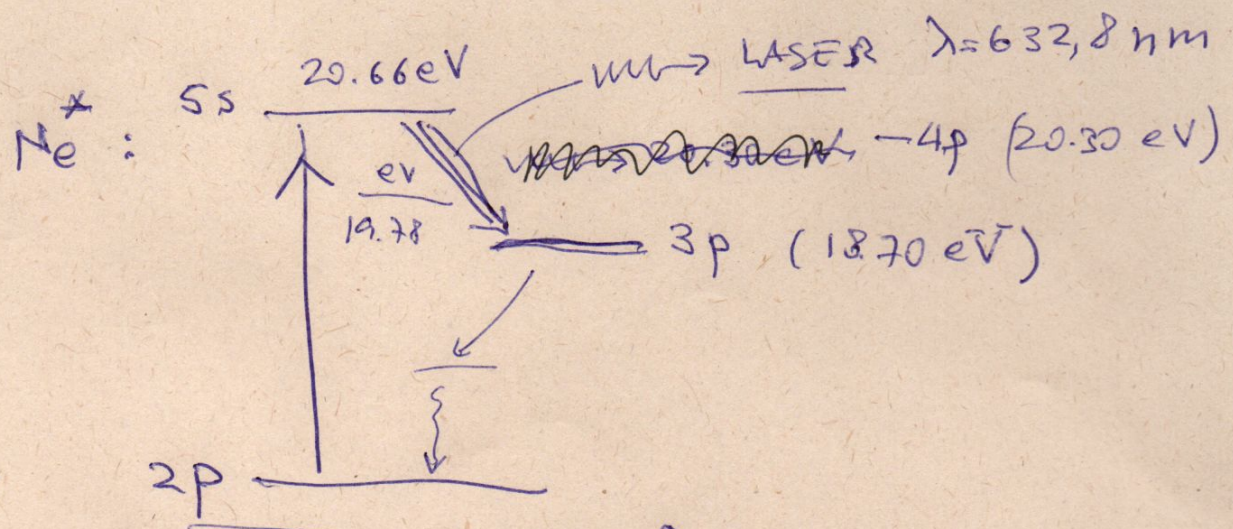 20.66eV LASER λ=632,8 nm
Ne* : 5s
4p (20.30 eV)
ev
19.78
3p (18.70 eV)
2p